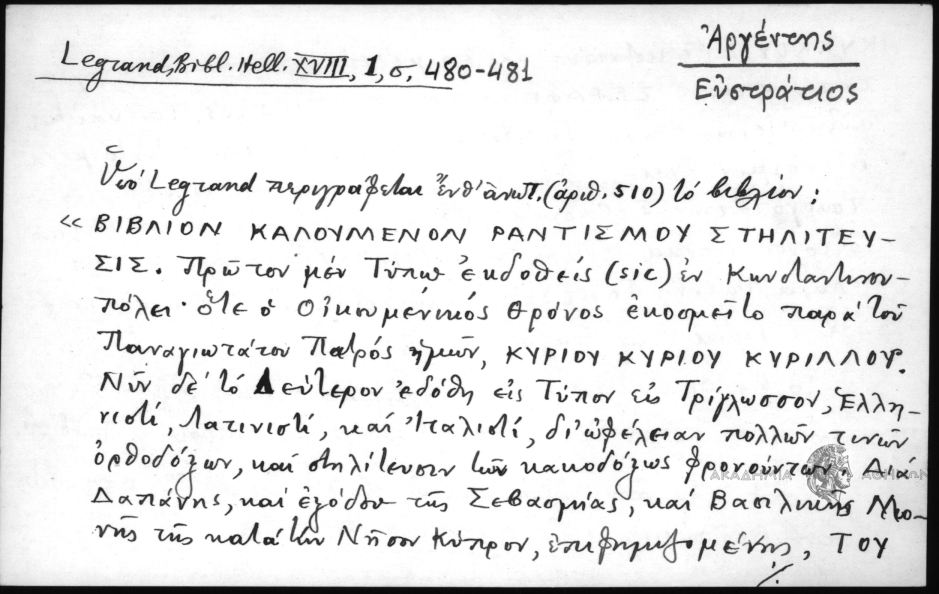 Legrand, Bibl. Hell. XVIII, 1, σ. 480-481
Ἀργέντης
Εὐστράτιος
Ὑπό Legrand περιγράφεται ἔνθ' ἀνωτ. (ἀριθ. 510) τό βιβλίον:
«ΒΙΒΛΙΟΝ ΚΑΛΟΥΜΕΝΟΝ ΡΑΝΤΙΣΜΟΥ ΣΤΗΛΙΤΕΥ-
ΣΙΣ. Πρῶτον μέν Τύπῳ ἐκδοθείς (sic) ἐν Κωνσταντινου-
πόλει· ὅτε ὁ Οἰκουμενικός Θρόνος ἐκοσμεῖτο παρά τοῦ
Παναγιωτάτου Πατρός ἡμῶν, ΚΥΡΙΟΥ ΚΥΡΙΟΥ ΚΥΡΙΛΛΟΥ.
Νῦν δέ τό Δεύτερον ἐδόθη εἰς Τύπον εἰς Τρίγλωσσον, Ἑλλη-
νιστί, Λατινιστί, καί Ἰταλιστί, δι' ὠφέλειαν πολλῶν τινῶν
ὀρθοδόξων, καί στηλίτευσιν τῶν κακοδόξως φρονούντων. Διά
Δαπάνης, καί ἐξόδου τῆς Σεβασμίας, καί Βασιλικῆς Μο-
νῆς τῆς κατά τήν Νῆσον Κύπρον, ἐπιφημιζομένης, ΤΟΥ
./.
ΑΚΑΔΗΜΙΑ ΑΘΗΝΩΝ